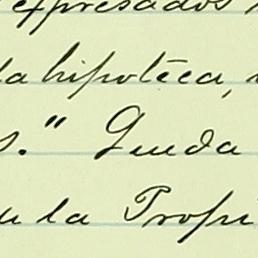 expresados
la hipoteca,
s." Queda
la Propi